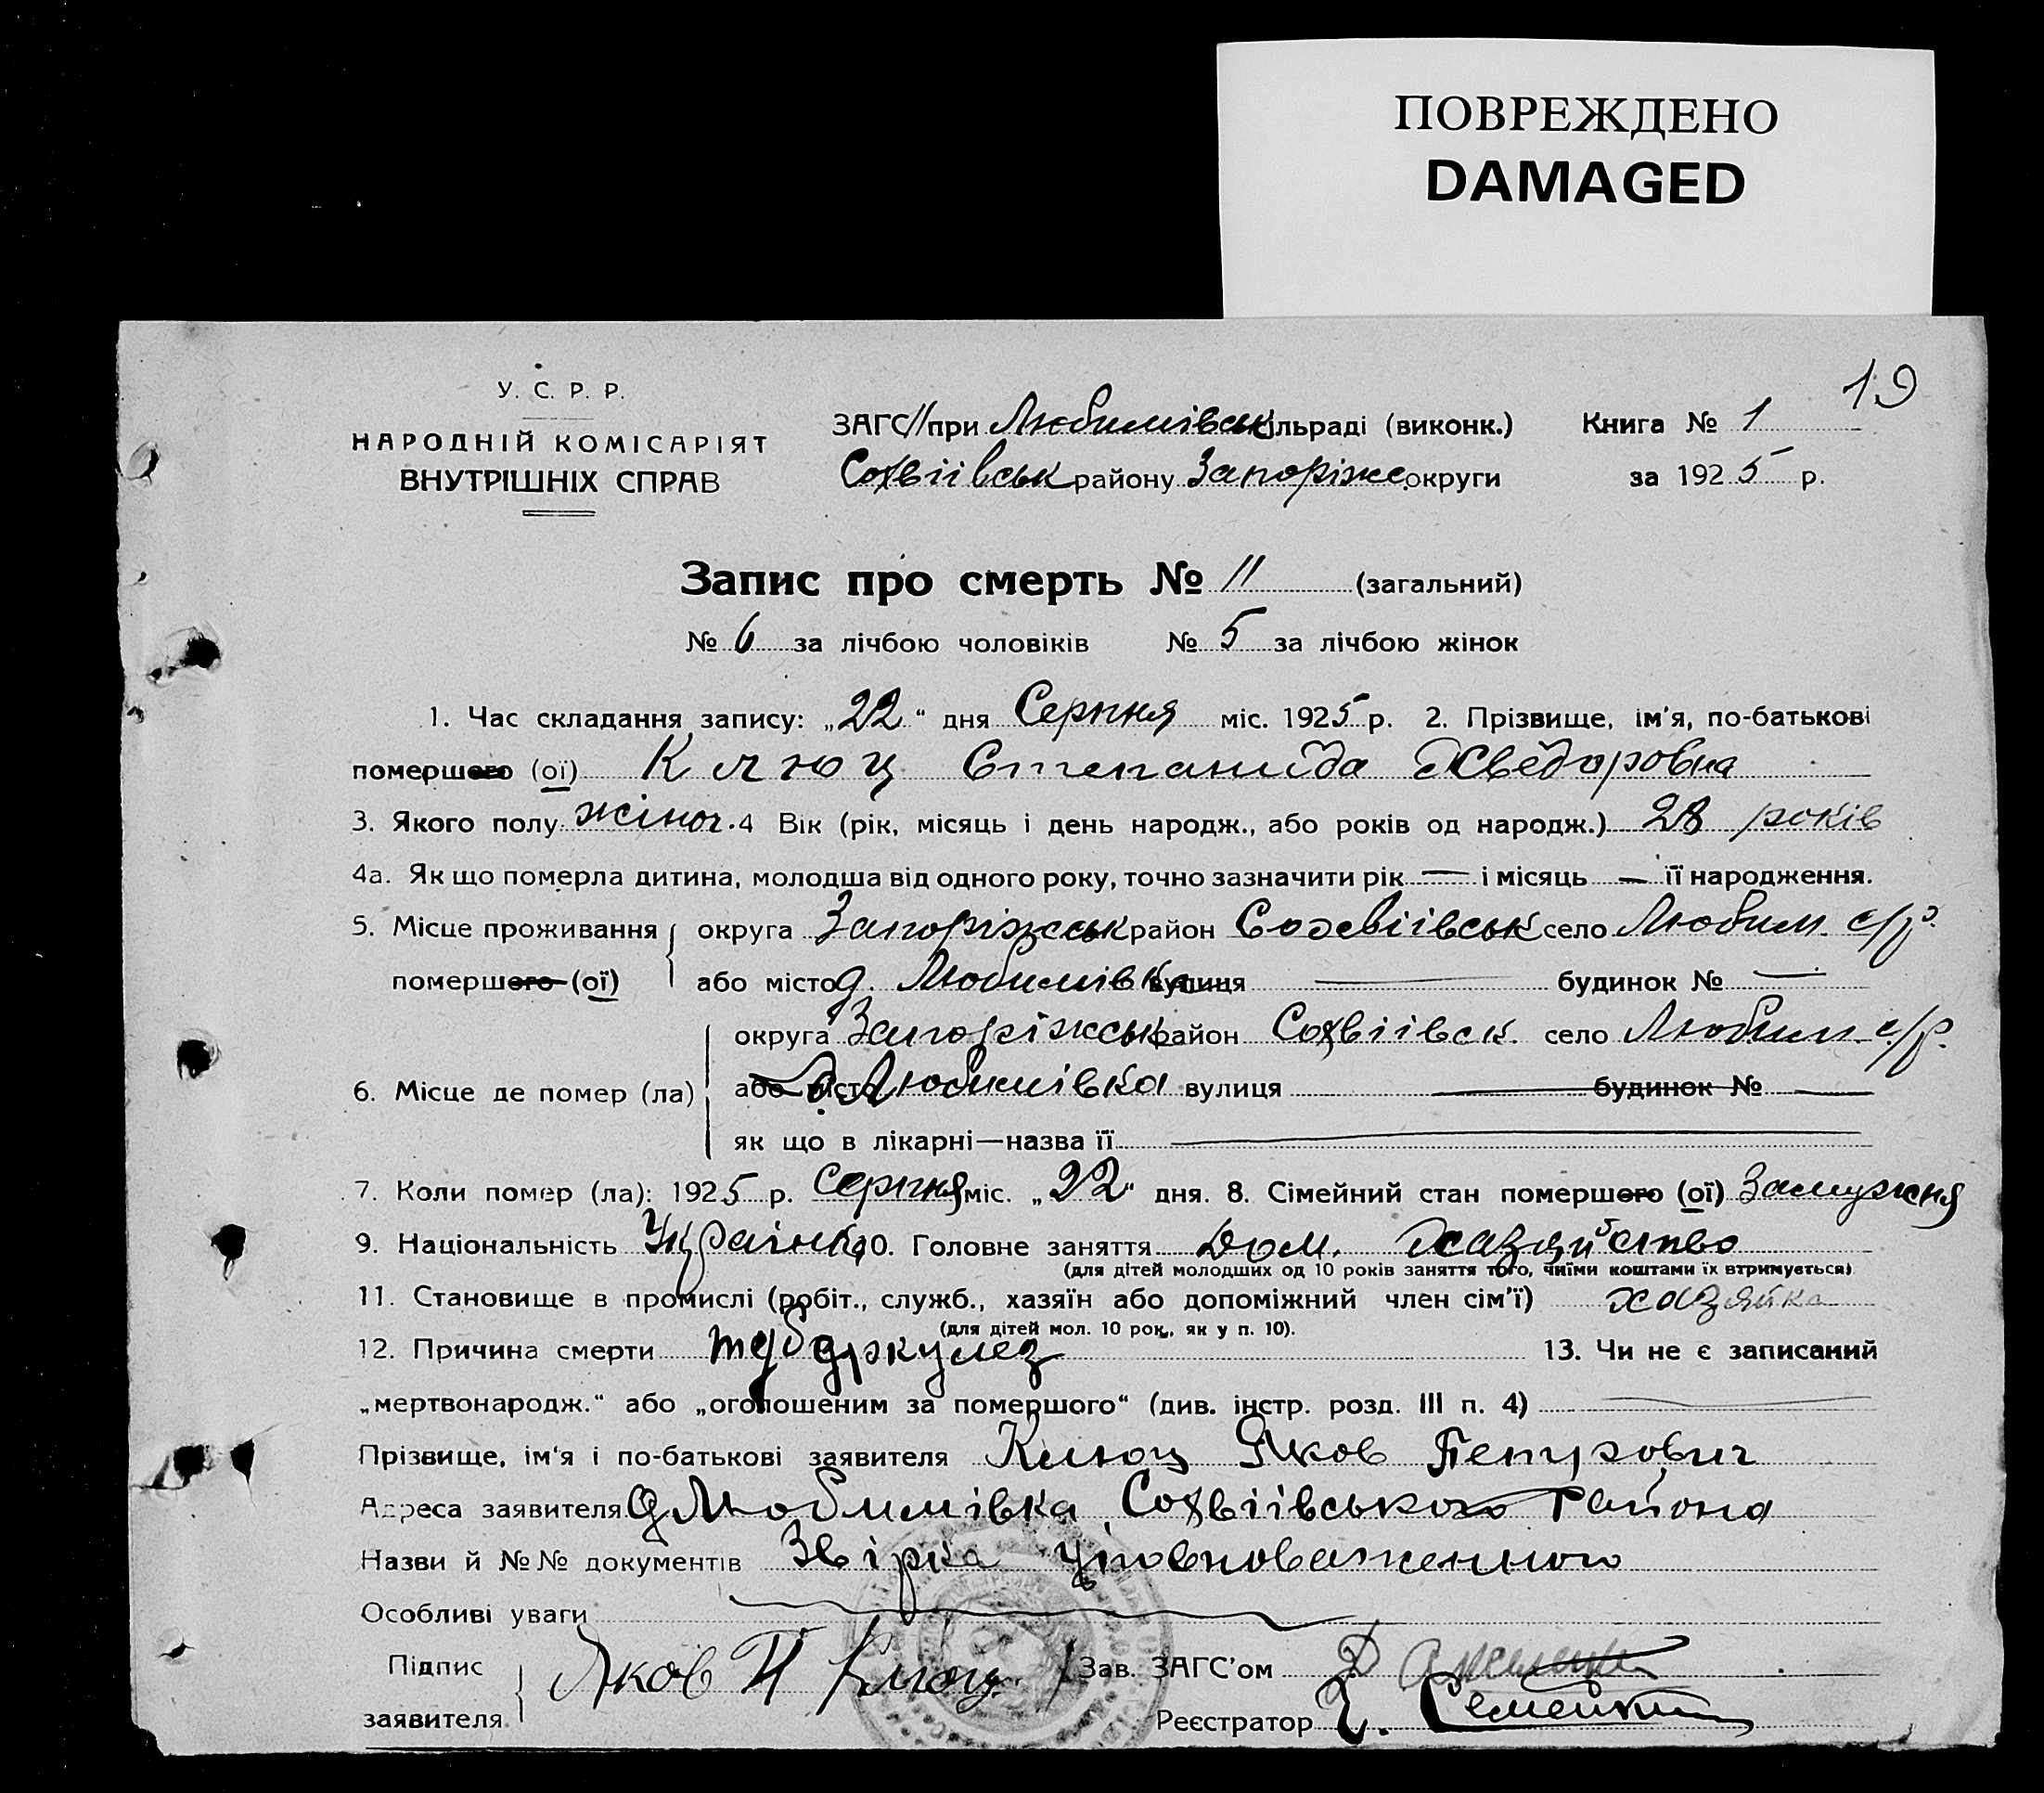 ПОВРЕЖДЕНО
DAMAGED
19
У. С. Р. Р.
НАРОДНІЙ КОМІСАРІЯТ
ВНУТРІШНІХ СПРАВ
ЗАГС при Любимівськ сільраді (виконк.) Книга № 1
Софіівськ району Запоріжс. округи за 1925 р.
Запис про смерть № 11 (загальний)
№ 6 за лічбою чоловіків № 5 за лічбою жінок
1. Час складання запису: „22“ дня Серпня міс. 1925 р. 2. Прізвище, ім'я, по-батькові
помершого (ої) Клюц Степанида Хведоровна
3. Якого полу жіноч. 4 Вік (рік, місяць і день народж., або років од народж.) 28 років
4а. Як що померла дитина, молодша від одного року, точно зазначити рік — і місяць — її народження.
5. Місце проживання округа Запоріжськ район Сохвіівськ село Любим. с/р.
помершого (ої) або місто д. Любимівка вулиця — будинок № —
округа Запоріжськ район Сохвіівск. село Любим. с/р.
6. Місце де помер (ла) або місто Любимівка вулиця — будинок № —
як що в лікарні—назва її —
7. Коли помер (ла): 1925 р. Серпня міс. „22“ дня. 8. Сімейний стан помершого (ої) Замужня
9. Національність Українка 10. Головне заняття Дом. Хазяйство
(для дітей молодших од 10 років заняття того, чиїми коштами їх втримується)
11. Становище в промислі (робіт., служб., хазяїн або допоміжний член сім'ї) хазяйка
(для дітей мол. 10 рок., як у п. 10).
12. Причина смерти туберкулез 13. Чи не є записаний
„мертвонародж.“ або „оголошеним за помершого“ (див. інстр. розд. III п. 4) —
Прізвище, ім'я і по-батькові заявителя Клюц Яков Петрович
Адреса заявителя д Любимівка Сохвіівського Района
Назви й №№ документів Звірка уповноваженного
Особливі уваги
Підпис Яков П Клюц Зав. ЗАГС'ом
заявителя Реєстратор